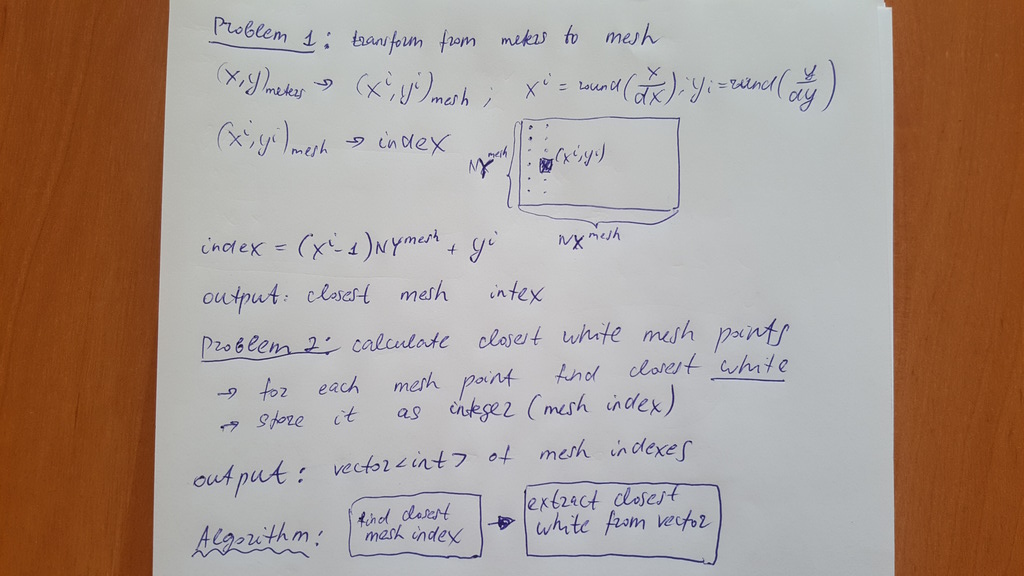 Problem 1: transform from meters to mesh
(x,y)meters → (xⁱ,yⁱ)mesh ; xⁱ = round(x/dx); yi = round(y/dy)
(xⁱ,yⁱ)mesh → index
NYmesh
(xⁱ,yⁱ)
NXmesh
index = (xⁱ-1)NYmesh + yⁱ
output: closest mesh intex
Problem 2: calculate closest white mesh points
→ for each mesh point find closest white
→ store it as integer (mesh index)
output: vector<int> of mesh indexes
Algorithm:
find closest
mesh index
→
extract closest
white from vector